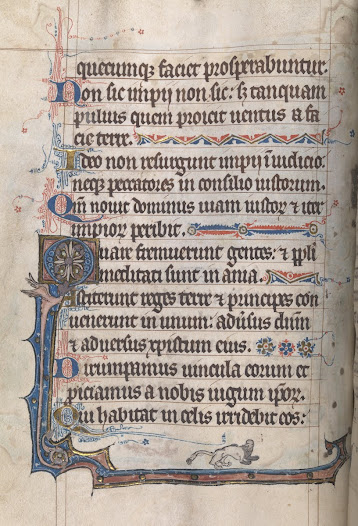 quecunqꝫ faciet prosperabuntur.
Non sic impij non sic: sꝫ tanquam
puluis quem proicit uentus a fa
cie terre.
Ideo non resurgunt impij ī iudicio:
neqꝫ peccatores in consilio iustorum.
Qm̄ nouit dominus uiam iustoꝝ ⁊ iter
impioꝝ peribit.
Quare fremuerunt gentes: ⁊ ppli
meditati sunt in ania.
Astiterunt reges terre ⁊ principes con
uenerunt in unum: adūsus dnm̄
⁊ aduersus xpistum eius.
Dirumpamus uincula eorum et
piciamus a nobis iugum ipoꝝ.
Qui habitat in celis irridebit eos: